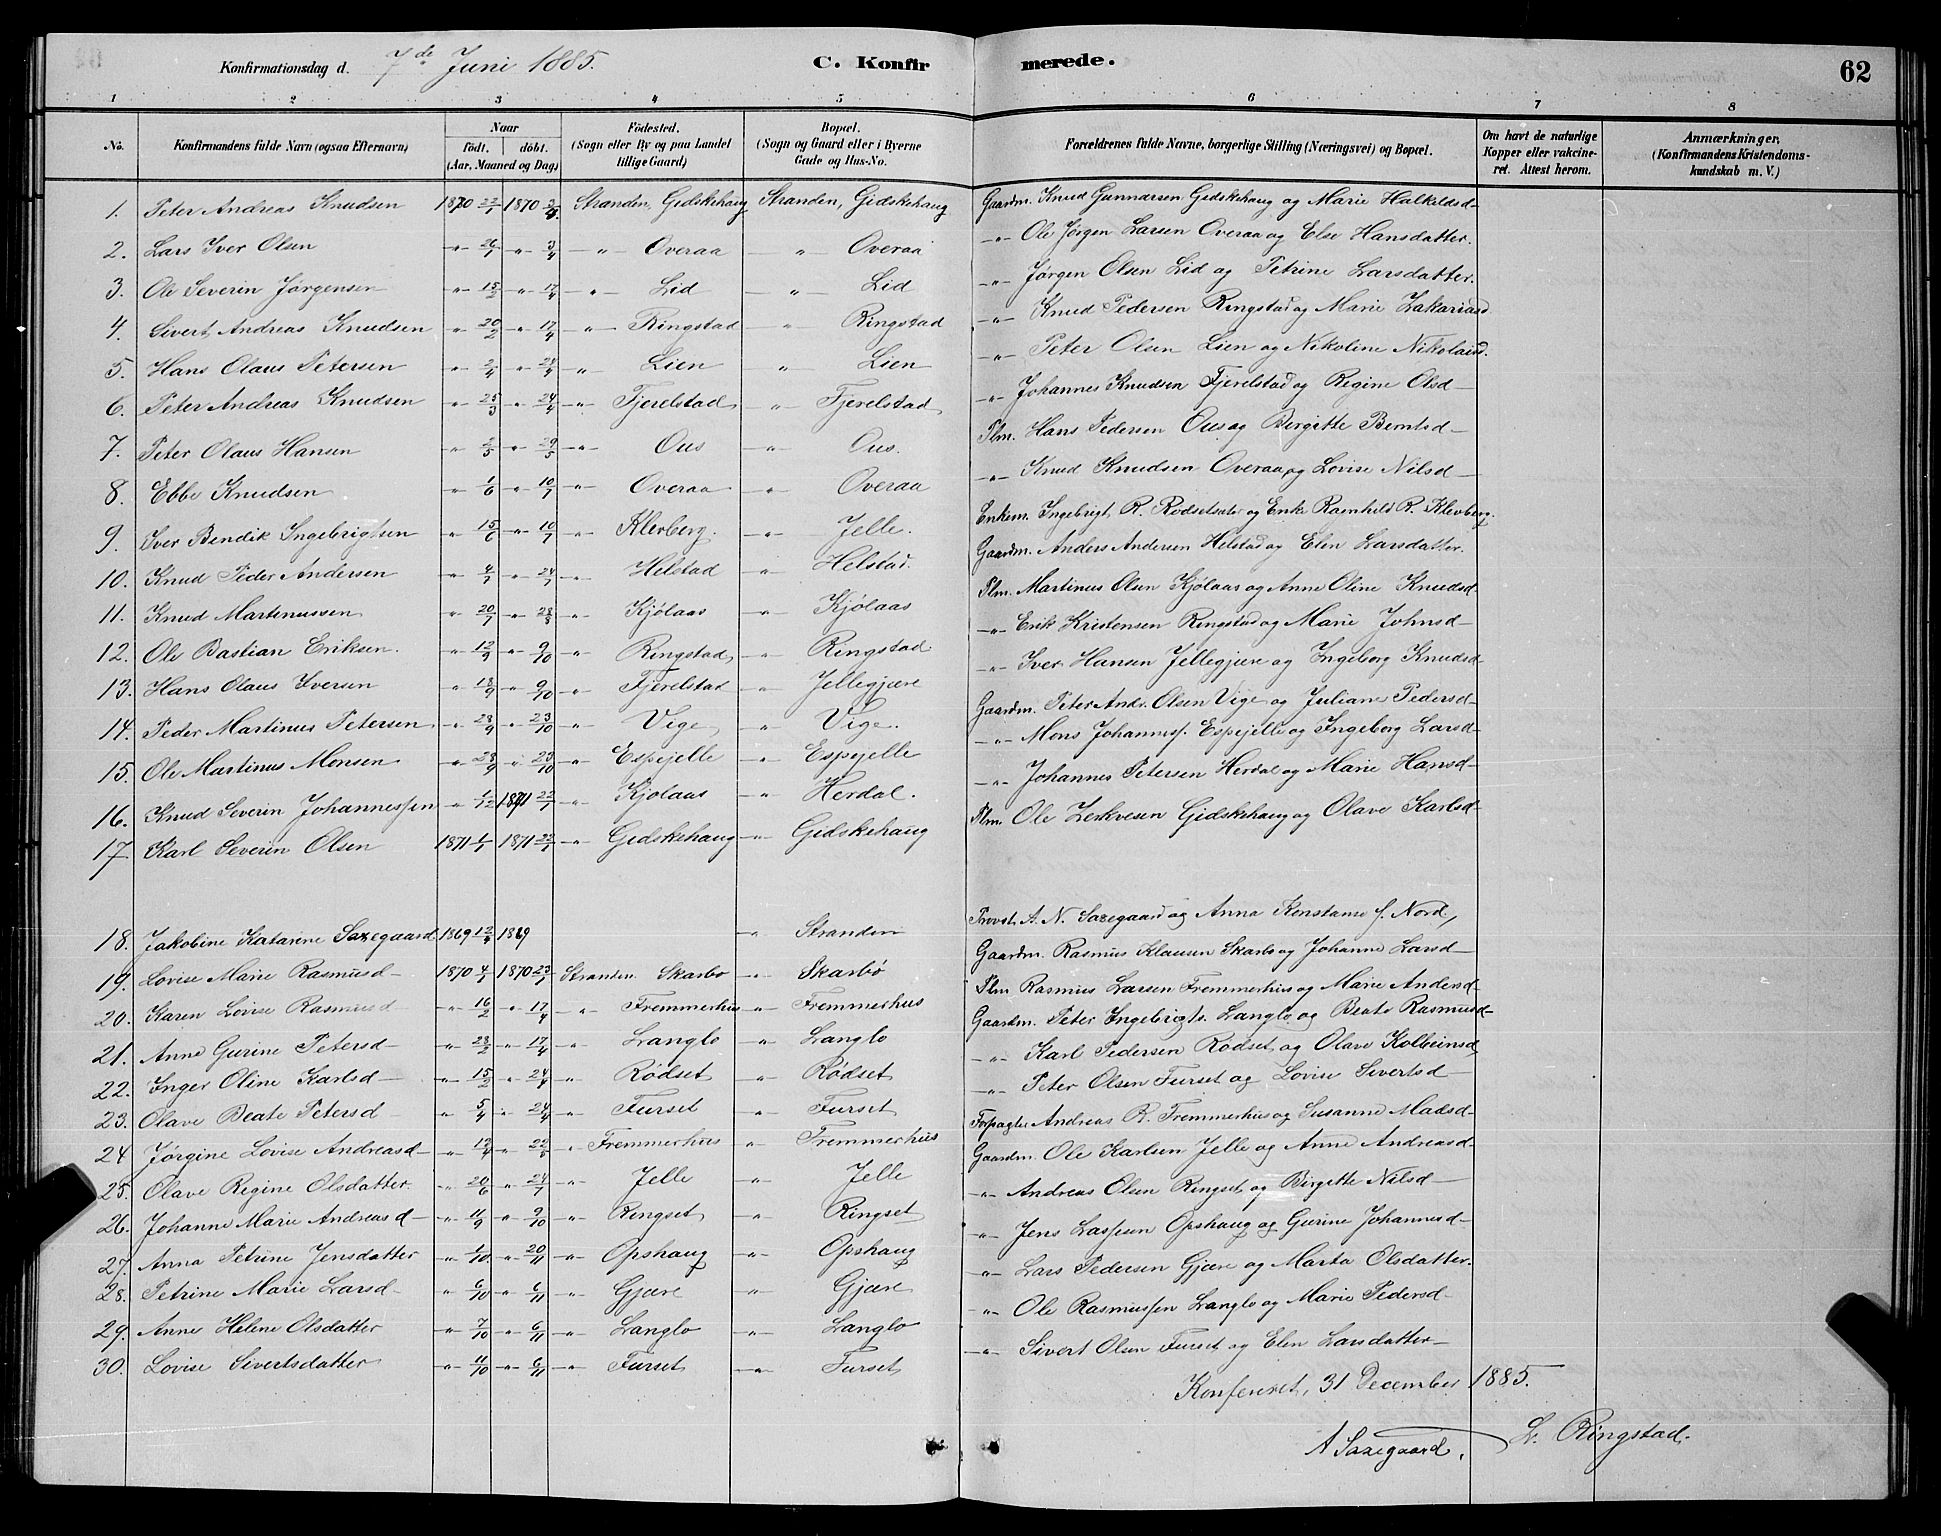 Konfirmationsdag d. 7de Juni 1885. C. Konfirmerede. 62
1 2 3 4 5 6 7 8
No. Konfirmandens fulde Navn (ogsaa Efternavn) Naar födt. döbt. (Aar, Maaned og Dag) Födested. (Sogn eller By og paa Landet tillige Gaard) Bopæl. (Sogn og Gaard eller i Byerne Gade og Hus-No. Forældrenes fulde Navne, borgerlige Stilling (Næringsvei) og Bopæl. Om havt de naturlige Kopper eller vakcineret. Attest herom. Anmærkninger, (Konfirmandens Kristendomskundskab m. V.)
1. Peter Andreas Knudsen 1870 22/1 1870 Stranden, Gidskehaug Stranden, Gidskehaug Gaardm. Knud Gunnarsen Gidskehaug og Marie Halkildsd-
2. Lars Iver Olsen " 26/1 " 3/4 -"- Overaa -"- Overaa -"- Ole Jørgen Larsen Overaa og Else Hansdatter.
3. Ole Severin Jørgensen " 15/2 " 17/4 -"- Lid " Lid -"- Jørgen Olsen Lid og Petrine Larsdatter.
4. Sivert Andreas Knudsen " 20/2 " 17/4 -"- Ringstad " Ringstad -"- Knud Pedersen Ringstad og Marie Zakariasd
5. Hans Olaus Petersen " 2/4 " 24/4 " Lien " Lien -"- Peter Olsen Lien og Nikoline Nikolaisd.
6. Peter Andreas Knudsen " 25/3 " 24/4 -"- Fjerelstad -"- Fjerelstad -"- Johannes Knudsen Fjerelstad og Regine Olsd-
7. Peter Olaus Hansen " 2/5 " 29/5 -"- Ous -"- Ous. Plm. Hans Pedersen Ous og Birgitte Berntsd-
8. Ebbe Knudsen " 1/6 " 10/7 -"- Overaa " Overaa -"- Knud Knudsen Overaa og Lovise Nilsd-
9. Iver Bendik Ingebrigtsen " 15/6 " 10/7 -"- Klevberg. -"- Jelle. Enkem. Ingebrigt R. Rødsetseter og Enke Ramhild R. Klevberg.
10. Knud Peder Andersen " 4/7 " 24/7 -"- Helstad " Helstad. Gaardm. Anders Andersen Helstad og Elen Larsdatter.
11. Knud Martinussen " 20/7 " 28/8 -"- Kjølaas -"- Kjølaas Plm. Martinus Olsen Kjølaas og Anne Oline Knudsd-
12. Ole Bastian Eriksen. " 12/9 " 9/10 " Ringstad -"- Ringstad -"- Erik Kristensen Ringstad og Marie Johnsd-
13. Hans Olaus Iversen " 18/9 " 9/10 " Fjerelstad " Jellegjære -"- Iver Hansen Jellegjære og Ingeborg Knudsd-
14. Peder Martinus Petersen " 28/9 " 23/10 " Vige " Vige. Gaardm. Peter Andr. Olsen Vige og Juliane Pedersd-
15. Ole Martinus Monsen " 28/9 " 23/10 " Espejelle -"- Espejelle -"- Mons Johanness. Espejelle og Ingeborg Larsd-
16. Knud Severin Johannessen " 1/12 1871 22/1 -"- Kjolaas -"- Herdal. -"- Johannes Petersen Herdal og Marie Hansd-
17. Karl Severin Olsen 1871 1/1 1871 22/1 -"- Gidskehaug -"- Gidskehaug Plm. Ole Gidskehaug og Olave Karlsd-
18. Jakobine Katarine Saxegaard 1869 1869 -"- Stranden Provst A. N. Saxegaard og Anna Konstanse f. Nord,
19. Lovise Marie Rasmusd- 1870 4/1 1870 23/1 Stranden Skarbø -"- Skarbø Gaardm. Rasmus Klausen Skarbø og Johanne Larsd-
20. Karen Lovise Rasmusd " 16/2 " 17/4 " Fremmerhus -"- Fremmerhus Plm Rasmus Larsen Fremmerhus og Marie Andersd-
21. Anne Gurine Petersd- " 23/2 " 17/4 " Langlo " Langlo Gaardm. Peter Ingebrigts. Langlo og Beate Rasmusd-
22. Inger Oline Karlsd- " 15/2 " 24/4 " Rødset " Rødset -"- Karl Pedersen Rødset og Olave Kolbeinsd
23. Olave Beate Petersd- " 5/4 " 24/4 " Furset " Furset -"- Peter Olsen Furset og Lovise Sivertsd-
24 Jørgine Lovise Andreasd- " 12/4 " 22/5 " Fremmerhus " Fremmerhus Forpagter Andreas R. Fremmerhus og Susanne Madsd-
25. Olave Regine Olsdatter. " 20/6 " 24/7 " Jelle " Jelle Gaardm. Ole Karlsen Jelle og Anne Andreasd-
26. Johanne Marie Andreasd- " 11/9 " 9/10 " Ringset " Ringset -"- Andreas Olsen Ringset og Birgitte Nilsd-
27. Anna Petrine Jensdatter " 1/10 " 20/11 " Opshaug " Opshaug -"- Jens Lassen Opshaug og Gurine Johannesd-
28. Petrine Marie Larsd- " 6/10 " 6/11 " Gjære " Gjære -"- Lars Pedersen Gjære og Marta Olsdatter.
29. Anne Helene Olsdatter " 7/10 " 6/11 -"- Langlo -"- Langlo -"- Ole Rasmussen Langlo og Marie Pedersd-
30. Lovise Sivertsdatter " 11/10 " 6/11 -"- Furset " Furset -"- Sivert Olsen Furset og Elen Larsdatter-
Konfereret, 31 December 1885.
A Saxegaard. L. Ringstad.